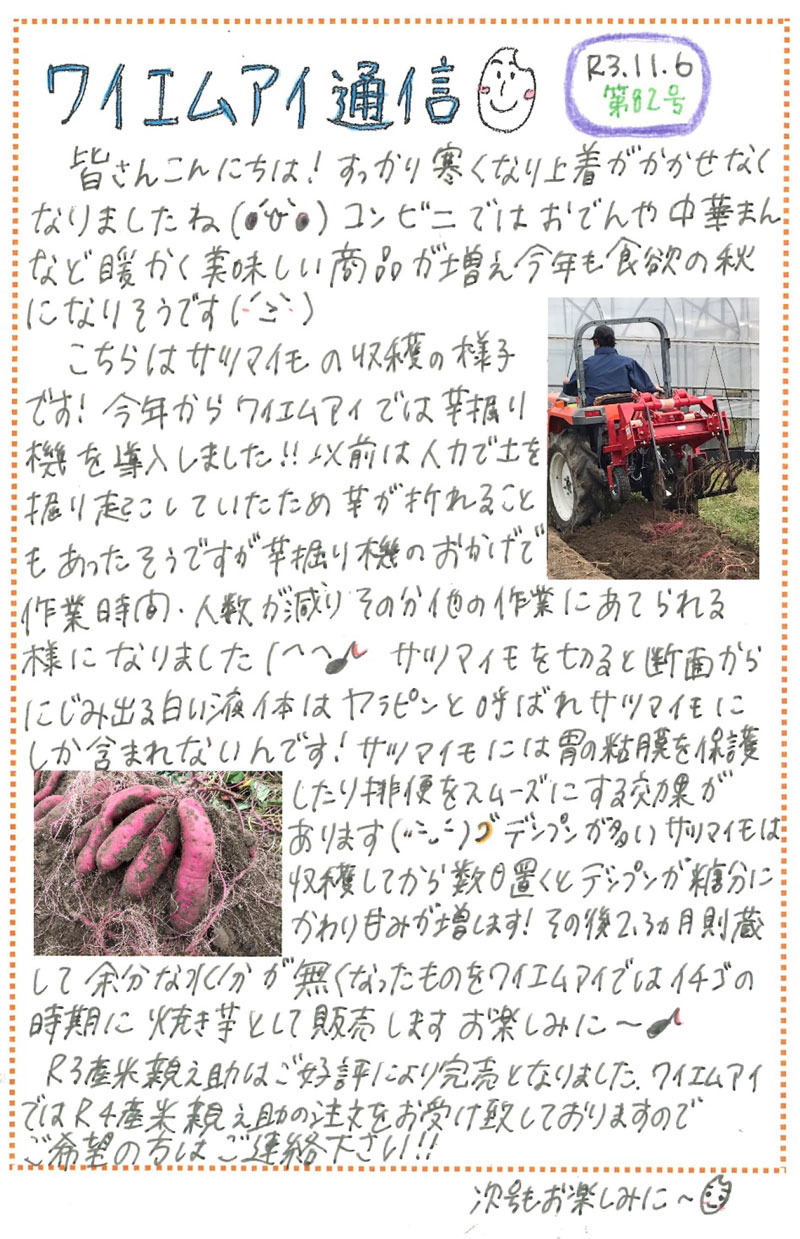 ワイエムアイ通信
R3.11.6
第82号
皆さんこんにちは!すっかり寒くなり上着がかかせなく
なりましたね(●'∀'●)コンビニではおでんや中華まん
など暖かく美味しい商品が増え今年も食欲の秋
になりそうです(
こちらはサツマイモの収穫の様子
です!今年からワイエムアイでは芋掘り
機を導入しました!!以前は人力で土を
掘り起こしていたため芋が折れること
もあったそうですが芋掘り機のおかげで
作業時間・人数が減りその分他の作業にあてられる
様になりました(^^♪ サツマイモを切ると断面から
にじみ出る白い液体はヤラピンと呼ばれサツマイモに
しか含まれないんです!サツマイモには胃の粘膜を保護
したり排便をスムーズにする効果が
あります デンプンが多いサツマイモは
収穫してから数日置くとデンプンが糖分に
かわり甘みが増します!その後2,3ヵ月貯蔵
して余分な水分が無くなったものをワイエムアイではイチゴの
時期に焼き芋として販売しますお楽しみに〜♪
R3産米親之助はご好評により完売となりました。ワイエムアイ
ではR4産米親之助の注文をお受け致しておりますので
ご希望の方はご連絡下さい!!
次号もお楽しみに〜